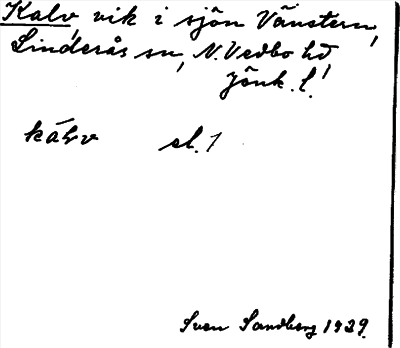 Kalv, vik i sjön Vänstern,
Linderås sn, N. Vedbo hd,
Jönk. l.
kálv sl. 1
Sven Sandberg 1929.